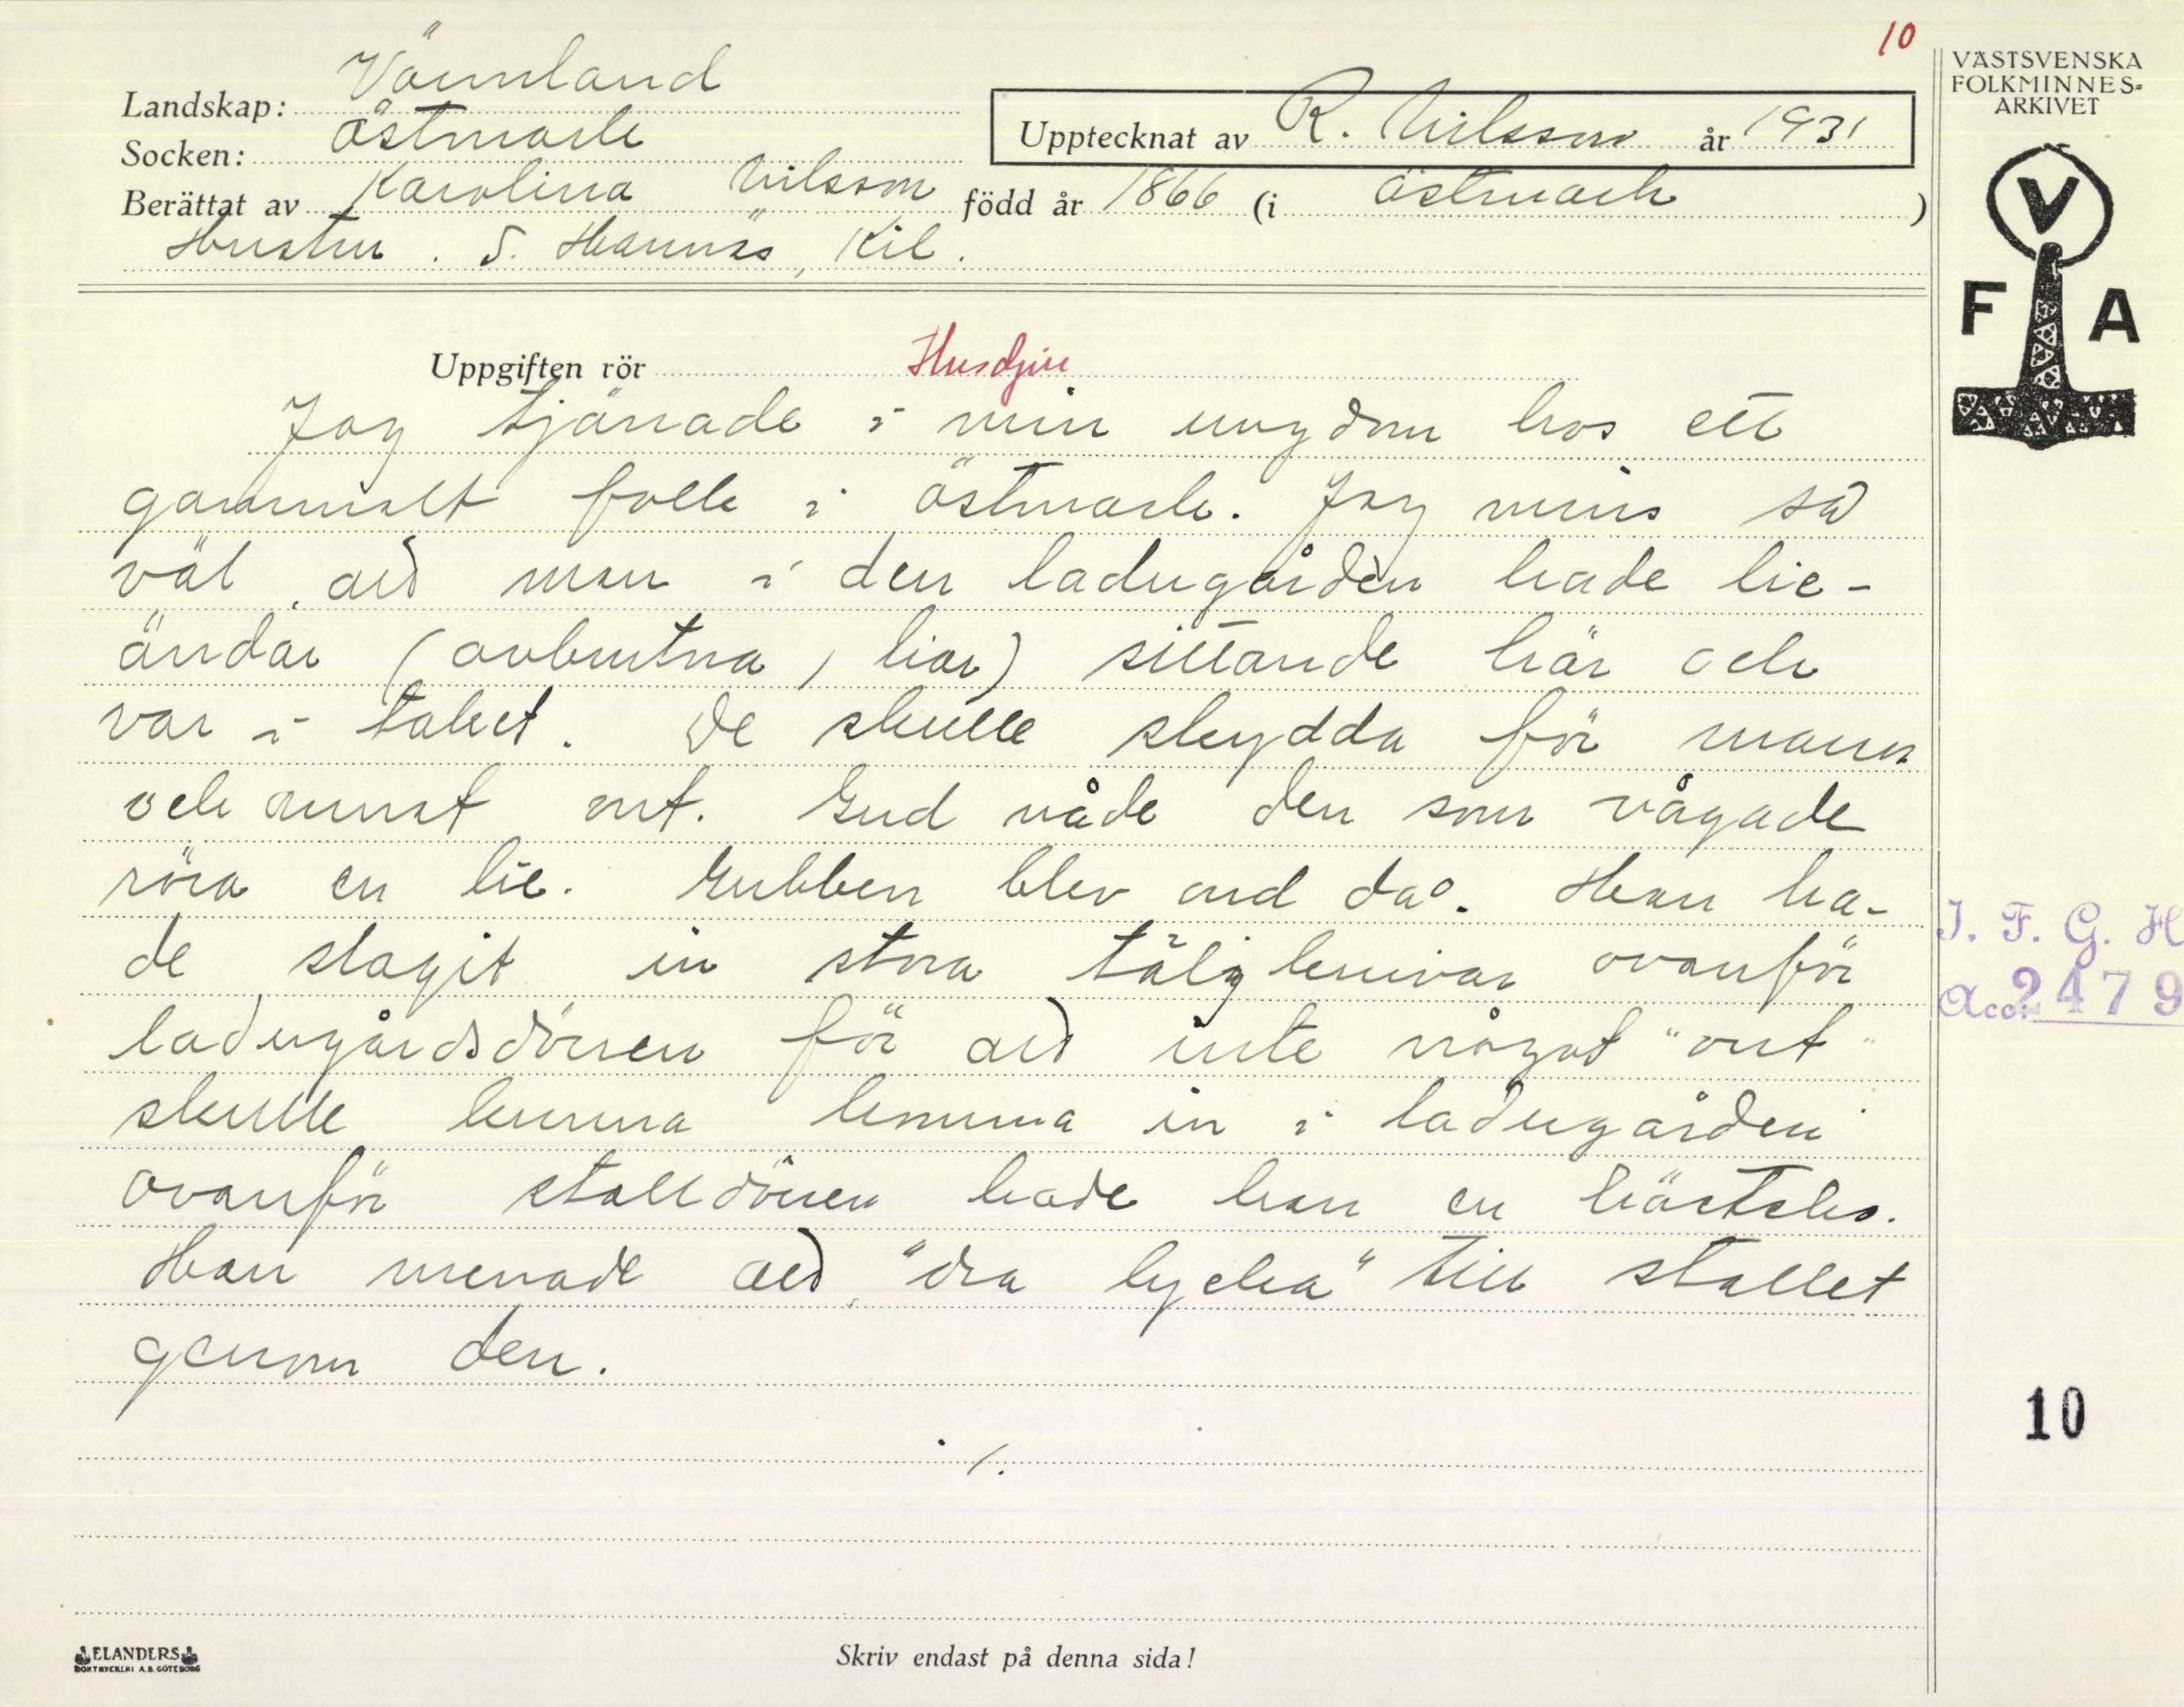 10
VÄSTSVENSKA
FOLKMINNES-
ARKIVET
Landskap: Värmland
Socken: Östmark
Upptecknat av R. Nilsson år 1931
Berättat av Karolina Nilsson född år 1866 (i Östmark)
Hustru. S. Hannäs, Kil.
V
F A
Uppgiften rör Husdjur
Jag tjänade i min ungdom hos ett
gammalt folk i Östmark. Jag minns så
väl, att man i den ladugården hade lie-
ändar (avbrutna liar) sittande här och
var i taket. De skulle skydda för maran
och annat ont. Gud nåde den som vågade
röra en lie. Gubben blev ond då. Han ha-
de slagit in stora täljknivar ovanför
ladugårdsdörren för att inte något "ont"
skulle kunna komma in i ladugården.
Ovanför stalldörren hade han en hästsko.
Han menade att "dra lycka" till stallet
genom den.
./.
I. F. G. H
Acc. 2479
10
ELANDERS
BOKTRYCKERI A.B. GÖTEBORG
Skriv endast på denna sida!